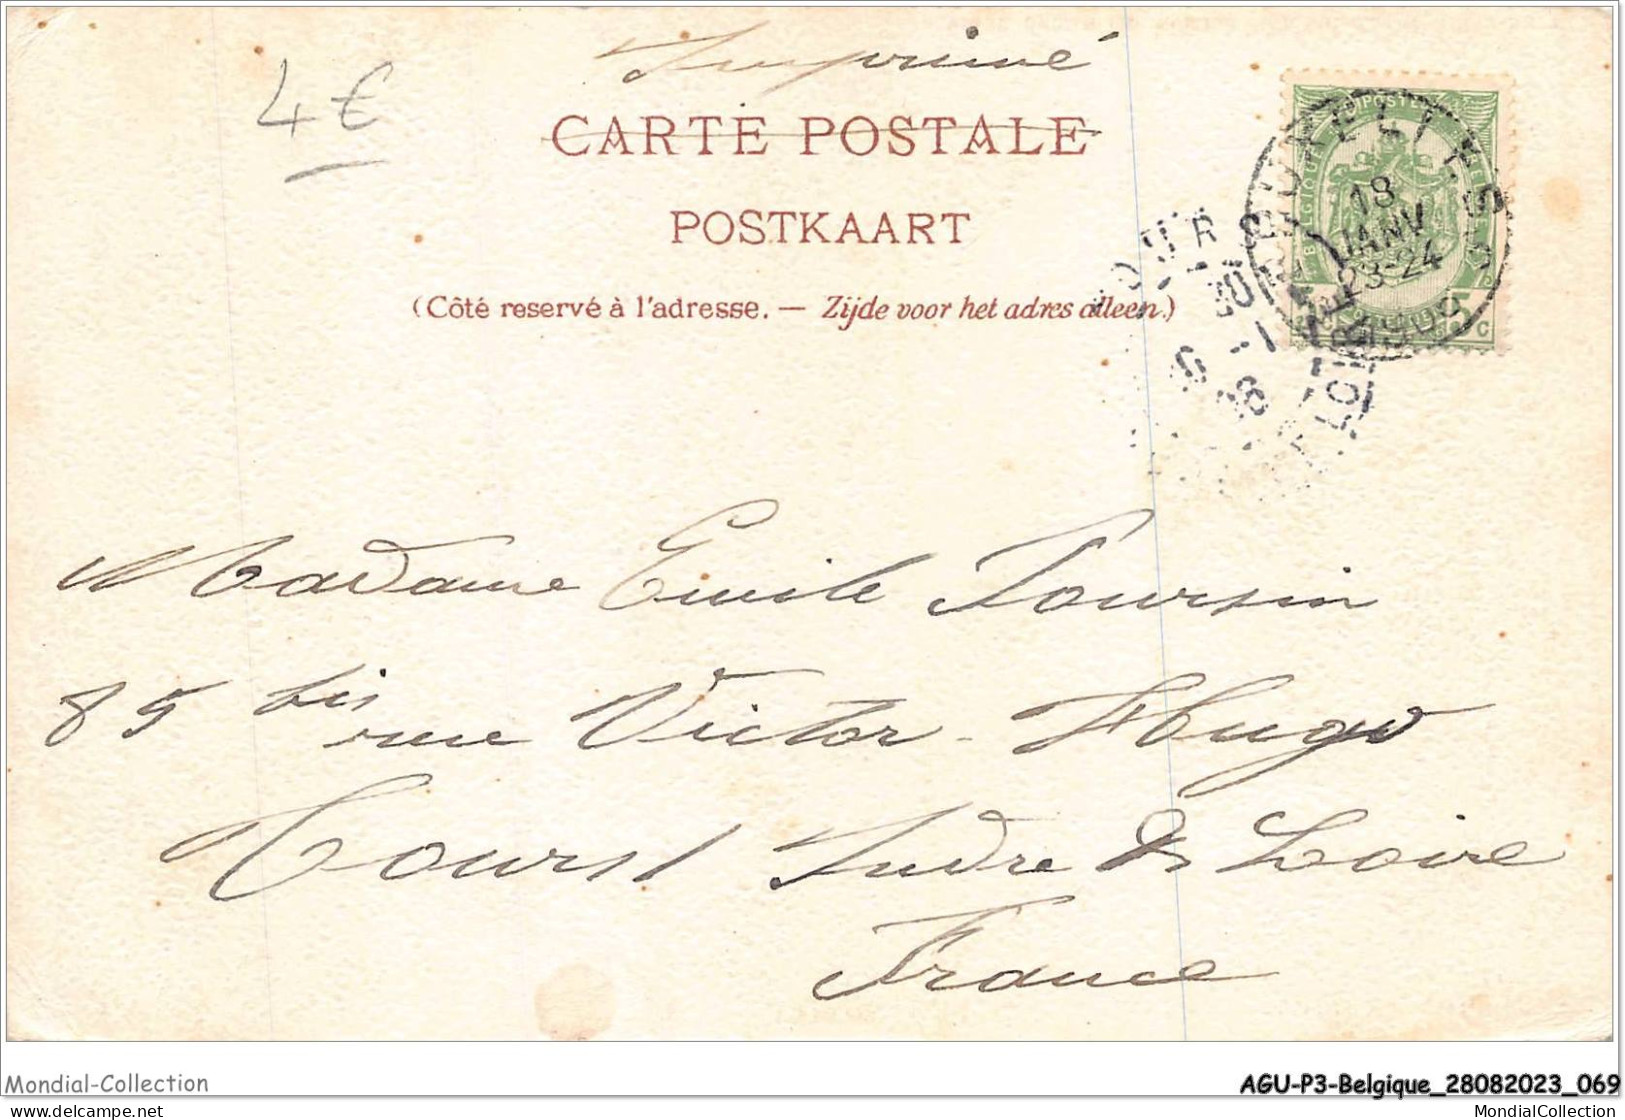 Imprimé
4€
CARTE POSTALE
POSTKAART
(Côté reservé à l'adresse. — Zijde voor het adres alleen.)
BRUXELLES
18
JANV
23-24
5 C
Madame Emile Toursin
85 bis rue Victor-Hugo
Tours / Indre & Loire
France
Mondial-Collection
AGU-P3-Belgique_28082023_069
mondialcollection.com
MondialCollection